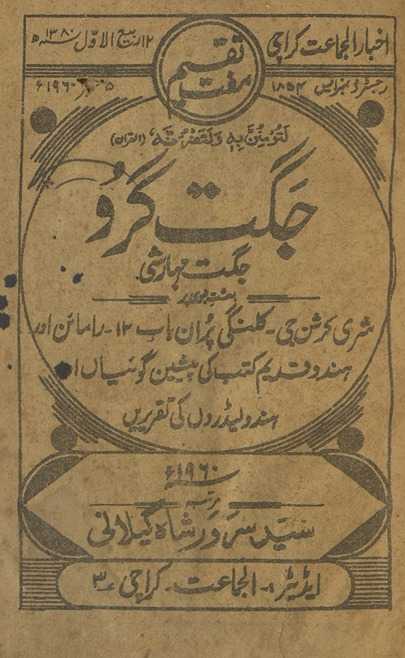 اخبار الجماعت کراچی
مفت تقسیم
۱۲ ربیع الاوّل ۱۳۸۰ھ
رجسٹرڈ نمبر ایس ۱۸۵۴
۵ ۱۹۶۰ء
لَتُؤْمِنُنَّ بِهٖ وَلَتَنْصُرُنَّهٗ (القرآن)
جَگت گرُو
جگت مہارشی
شری کرشن جی ۔ کلنکی پُران باب ۱۲ ۔ رامائن اور
ہندو قدیم کتب کی پیشین گوئیاں
ہندو لیڈروں کی تقریریں
۱۹۶۰ء
مرتبہ
سیّد سرور شاہ گیلانی
ایڈیٹر ۔ الجماعت ۔ کراچی ۳